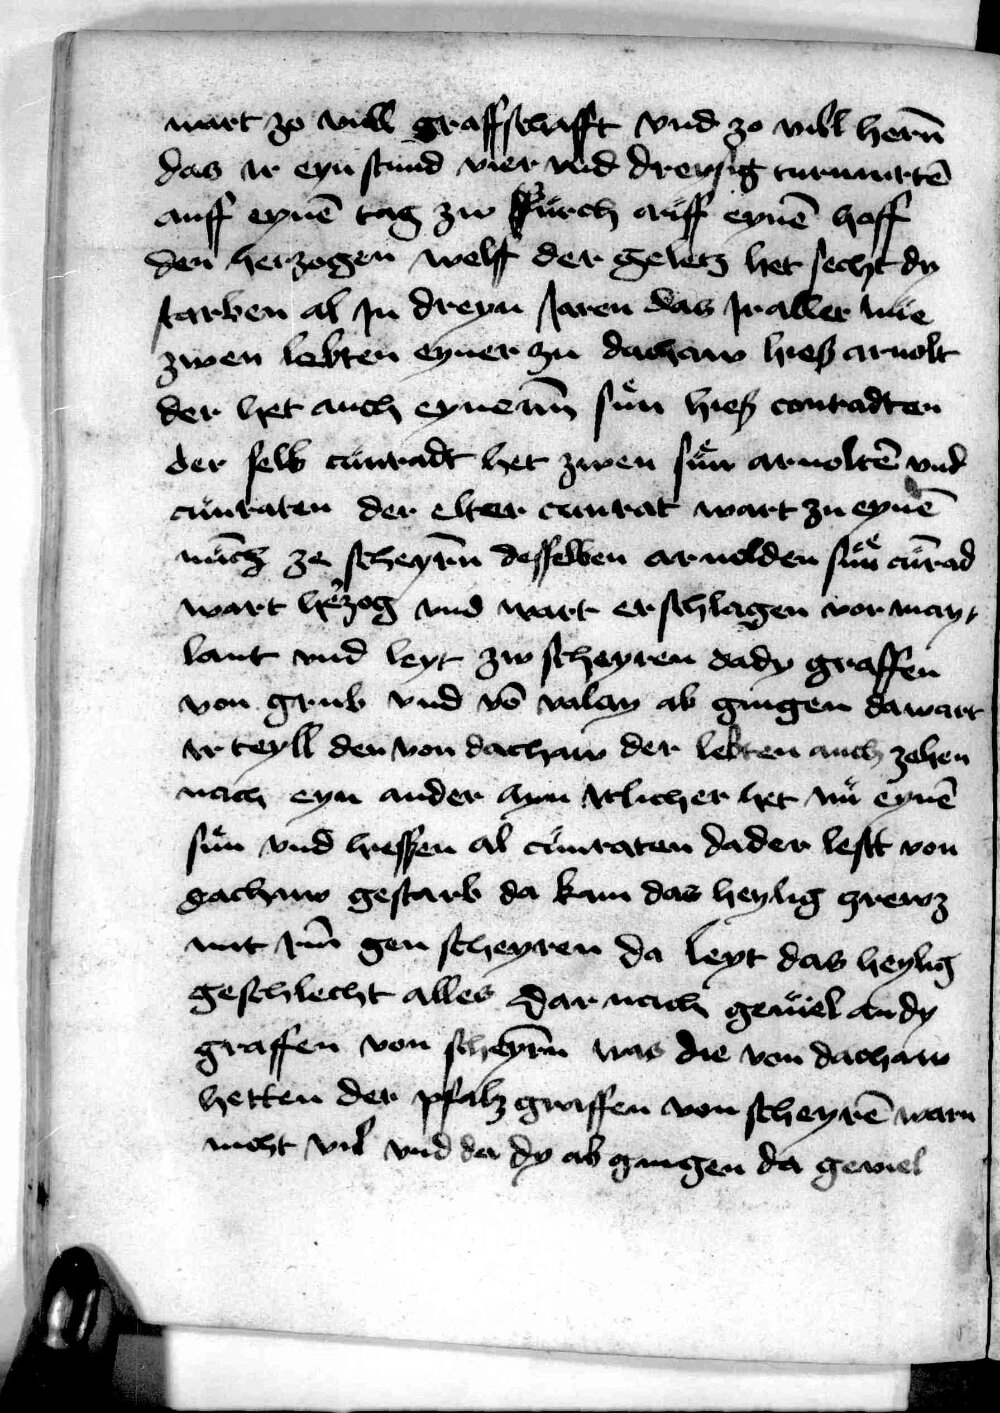 wart zo vill graffschafft vnd zo vill herñ
das ir eyn stund vier vnd dreysig turnirtē
auff eynē tag zw fürch auff eynē hoff
den herzogen welff der geletz het secht dy
starben al in dreyn Jaren das Jr aller nüe
zwen lebten eyner zu dachaw hieß arnolt
der het auch eynenn sün hieß conradten
der selb cünradt het zwen sün arnoltē vnd
cünraten der elter cunrat wart zu eynē
münch ze scheyrn̄ desselben arnolden sün cünrad
wart hẽzog vnd wart erschlagen vor may,
lant vnd leyt zw scheyren da dy graffen
von grub vnd vō valay ab gingen da wart
ir teyll den von dachaw der lebten auch zehen
nach eyn ander ayn itlicher het nü eynē
sün vnd hiessen al cünraten da der lestt von
dachaw gestarb da kam das heylig chrewz
mit im̄ gen scheyren da leyt das heylig
geschlecht alles dar nach geuiel an dy
graffen von scheyrn̄ was die von dachaw
hetten der pfalz graffen von scheyrē warn
nicht vil vnd da dy ab gingen da geuiel